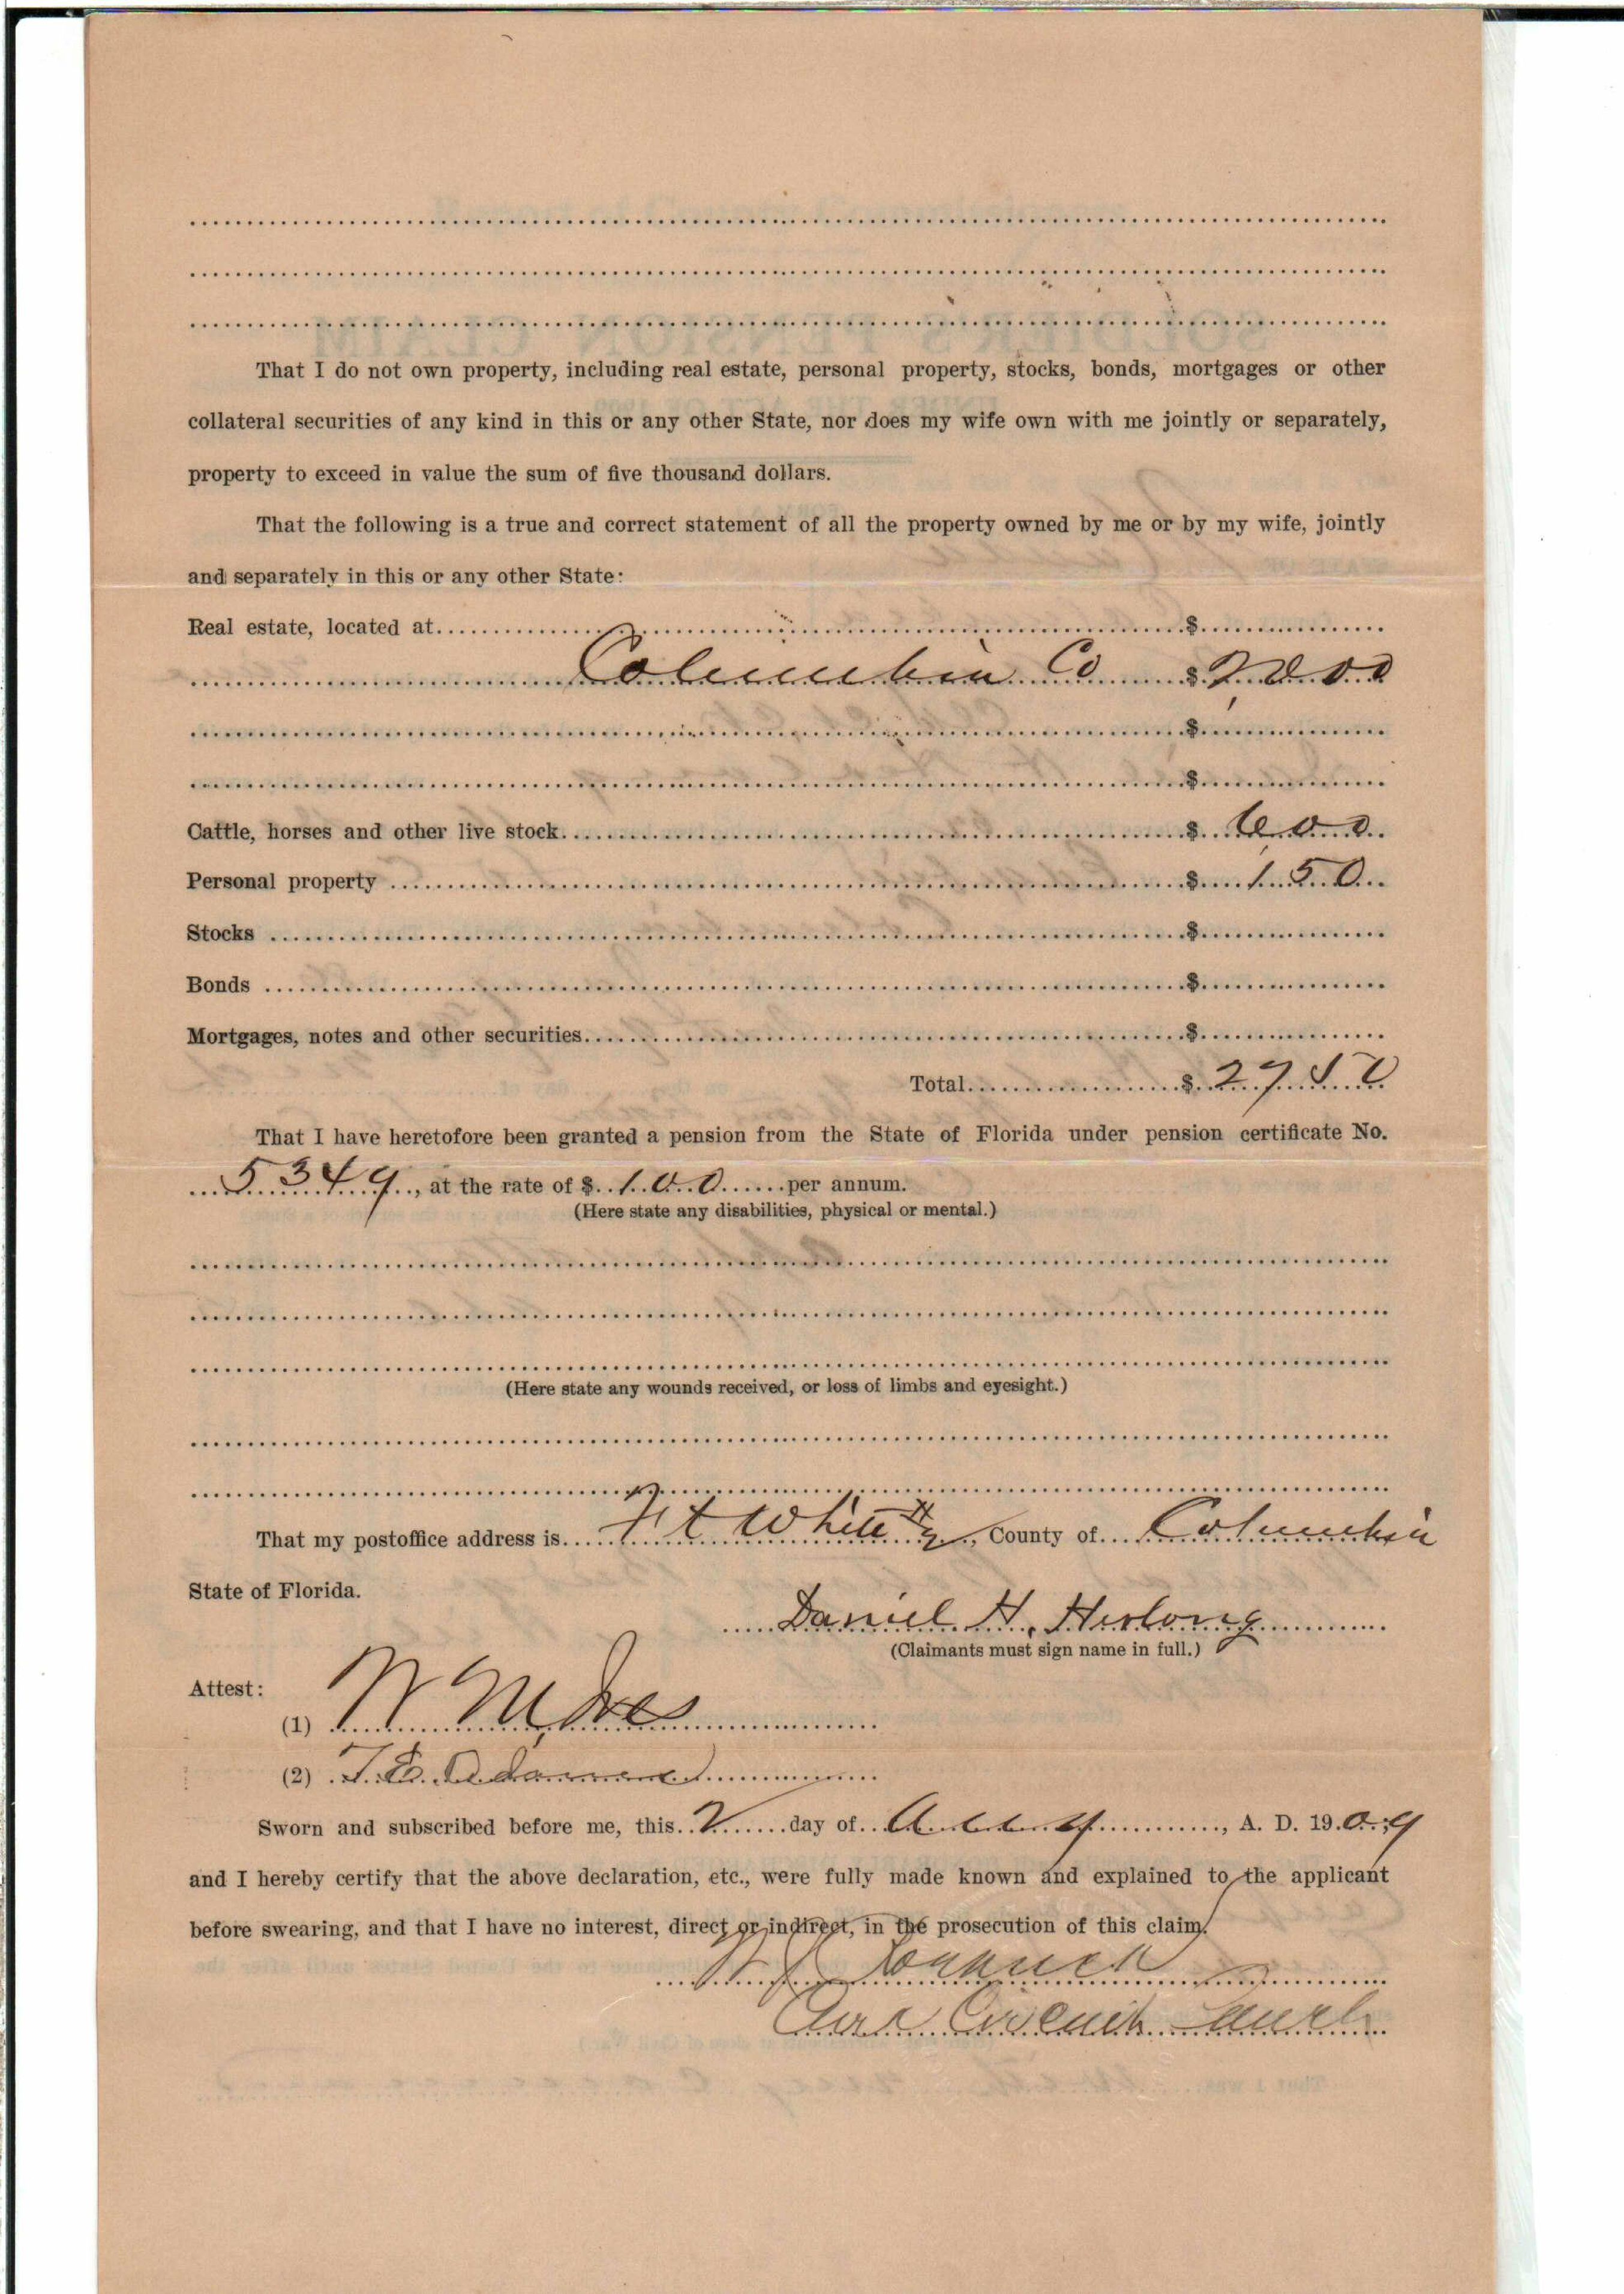 That I do not own property, including real estate, personal property, stocks, bonds, mortgages or other
collateral securities of any kind in this or any other State, nor does my wife own with me jointly or separately,
property to exceed in value the sum of five thousand dollars.
That the following is a true and correct statement of all the property owned by me or by my wife, jointly
and separately in this or any other State:
Real estate, located at $
Columbia Co $ 2000
$
$
Cattle, horses and other live stock $ 600
Personal property $ 150
Stocks $
Bonds $
Mortgages, notes and other securities $
Total $ 2750
That I have heretofore been granted a pension from the State of Florida under pension certificate No.
5349, at the rate of $ 100 per annum.
(Here state any disabilities, physical or mental.)
(Here state any wounds received, or loss of limbs and eyesight.)
That my postoffice address is Ft White, County of Columbia
State of Florida.
Daniel H. Herlong
(Claimants must sign name in full.)
Attest:
(1) W M Ives
(2) T. E.
Sworn and subscribed before me, this 2 day of, A. D. 1909
and I hereby certify that the above declaration, etc., were fully made known and explained to the applicant
before swearing, and that I have no interest, direct or indirect, in the prosecution of this claim.
Circuit Court